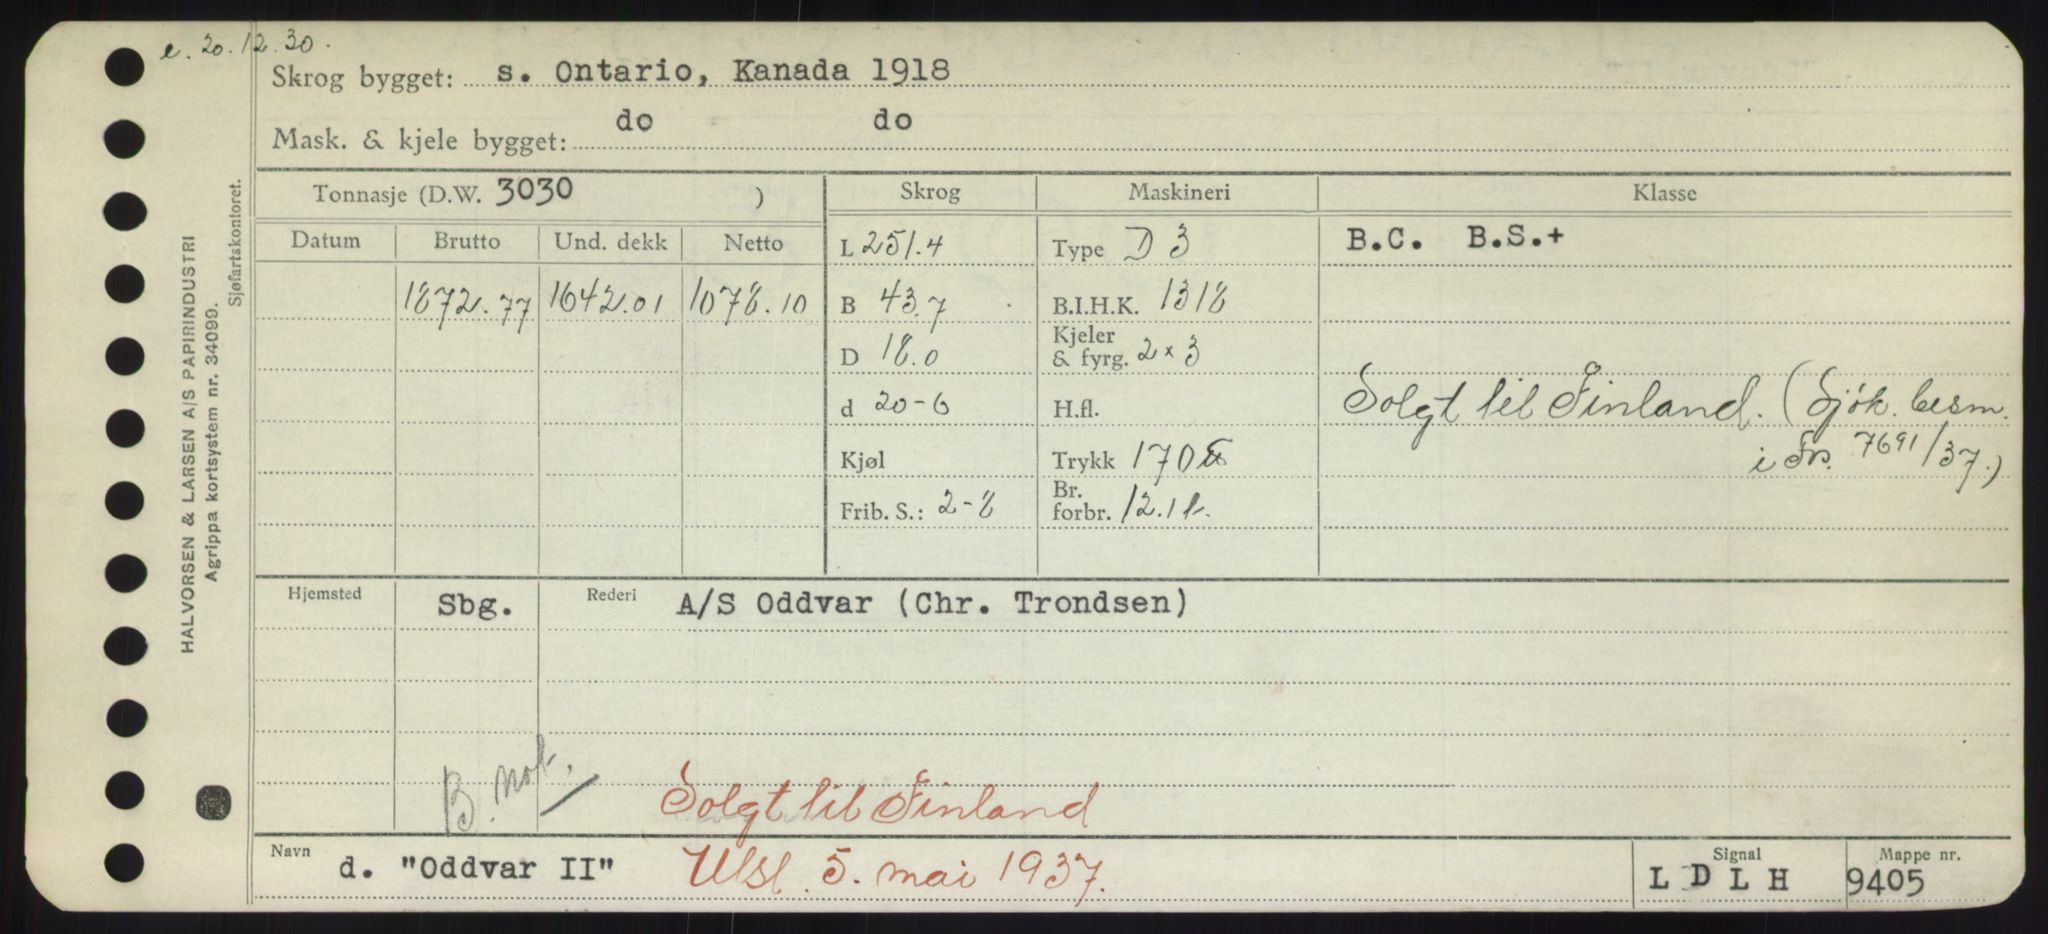 e. 20.12.30.
Skrog bygget: s. Ontario, Kanada 1918
Mask. & kjele bygget: do do
Tonnasje (D.W. 3030 ) Skrog Maskineri Klasse
Datum Brutto Und. dekk Netto L 251.4 Type D 3 B.C. B.S.+
1872.77 1642.01 1078.10 B 43.7 B.I.H.K. 1318
D 18.0 Kjeler & fyrg. 2 x 3
d 20-6 H.fl. Solgt til Finland. (Sjök. besm.
Kjøl Trykk 170 i Frs. 7691/37.)
Frib. S.: 2-8 Br. forbr. 12.1 t.
Hjemsted Sbg. Rederi A/S Oddvar (Chr. Trondsen)
B. not.
Solgt til Finland
Navn d. "Oddvar II" Utsl. 5. mai 1937. Signal LDLH Mappe nr. 9405
HALVORSEN & LARSEN A/S PAPIRINDUSTRI
Agrippa kortsystem nr. 34099.
Sjøfartskontoret.